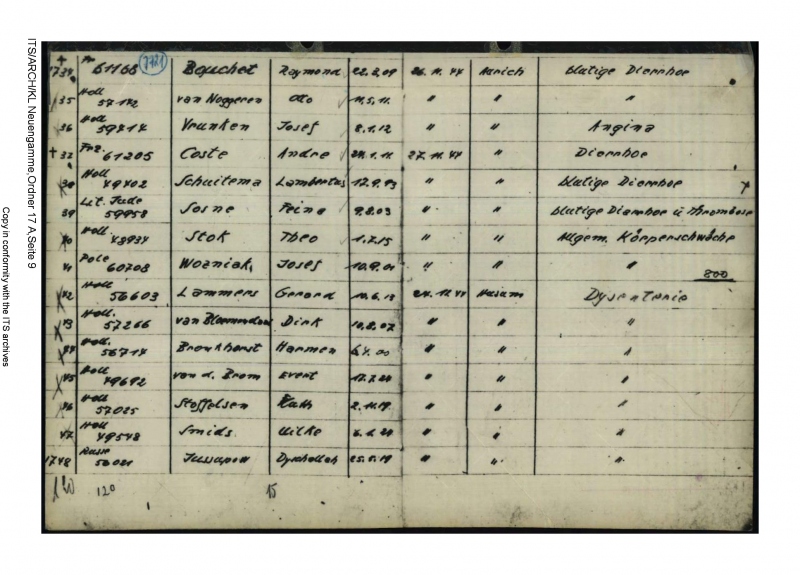 ITS/ARCH/KL Neuengamme, Ordner 17 A, Seite 9
Copy in conformity with the ITS archives
Fr 61168 7721 Bouchet Raymond 22.2.09 26.11.44 Aurich blutige Diarrhoe
35 Holl 57142 van Noggeren Otto 11.5.11. " " "
36 Holl 59414 Vrunken Josef 8.1.12 " " Angina
+ Frz. 61205 Coste Andre 27.11.44 " Diarrhoe
Holl 49402 Schuitema Lambertus 17.9.93 " " blutige Diarrhoe
39 Lit. Jude 59958 Sosne Feina 9.8.03 " " blutige Diarrhoe u Thrombose
40 Holl 48934 Stok Theo 1.7.15 " " Allgem. Körperschwäche
41 Pole 60708 Wozniak, Josef 10.9.01 " " "
800
42 Holl 56603 Lammers Gerard 10.6.13 24.11.44 Husum Dysenterie
43 Holl. 57266 van Dirk 10.8.07 " " "
44 Holl. 56714 Bronkhorst Harmen 6.4.00 " " "
45 Holl 49692 van d. Brom Evert 17.7.24 " " "
46 Holl 57025 Stoffelsen 2.11.19 " " "
47 Holl 49548 Smids. Wilke " " "
1748 Russe 56021 Jussupow 25.5.19 " " "
120 15